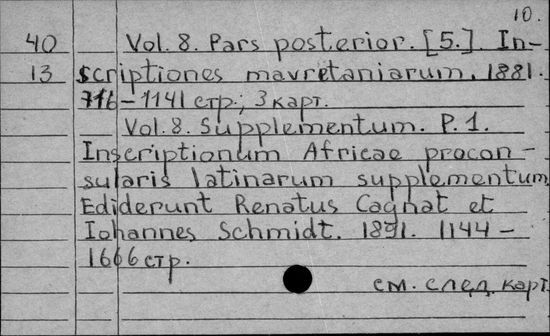 10.
40 Vol. 8. Pars posterior. [5.]. In-
13 scriptiones mavretaniarum. 1881.
716 – 1141 стр., 3 карт.
Vol. 8. Supplementum. P. 1.
Inscriptionum Africae procon-
sularis latinarum supplementum
Ediderunt Renatus Cagnat et
Iohannes Schmidt. 1891. 1144 –
1666 стр.
см. след. карт.